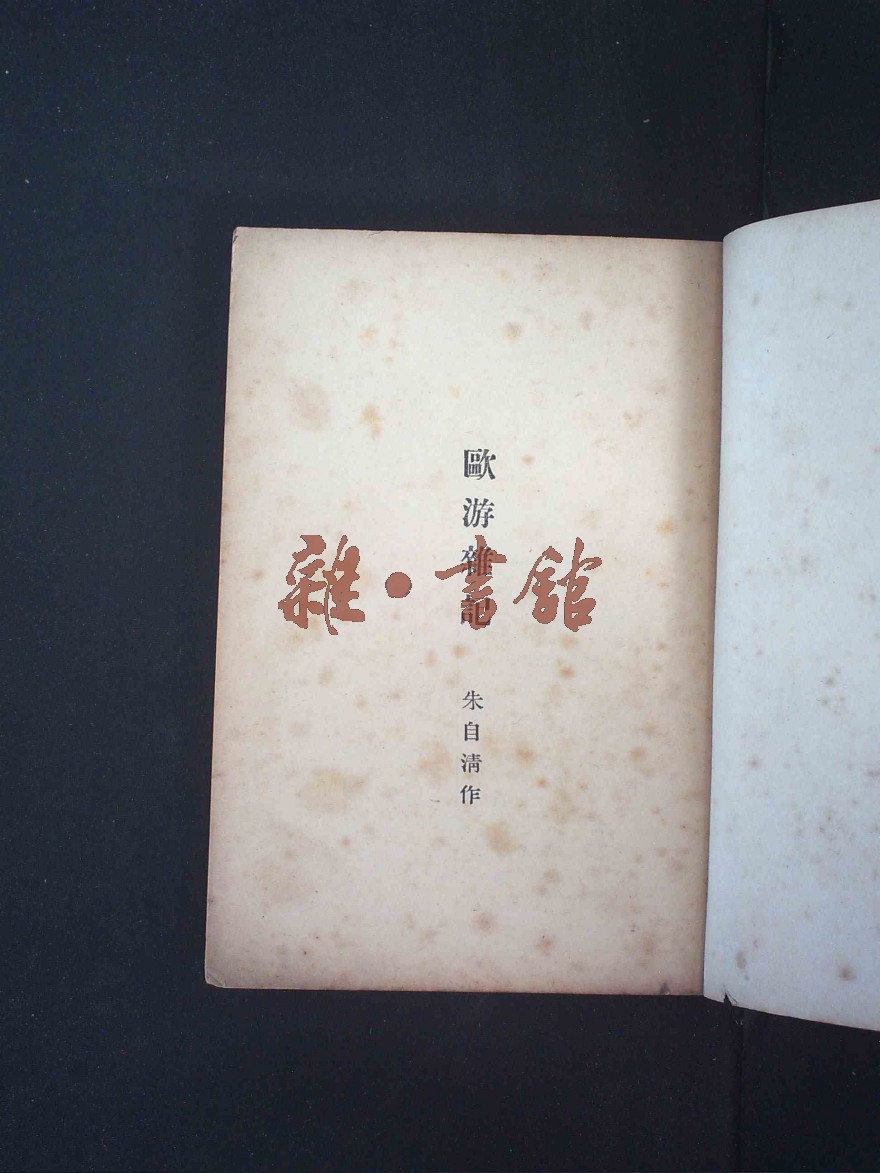 歐游雜記
朱自清作
雜·書館